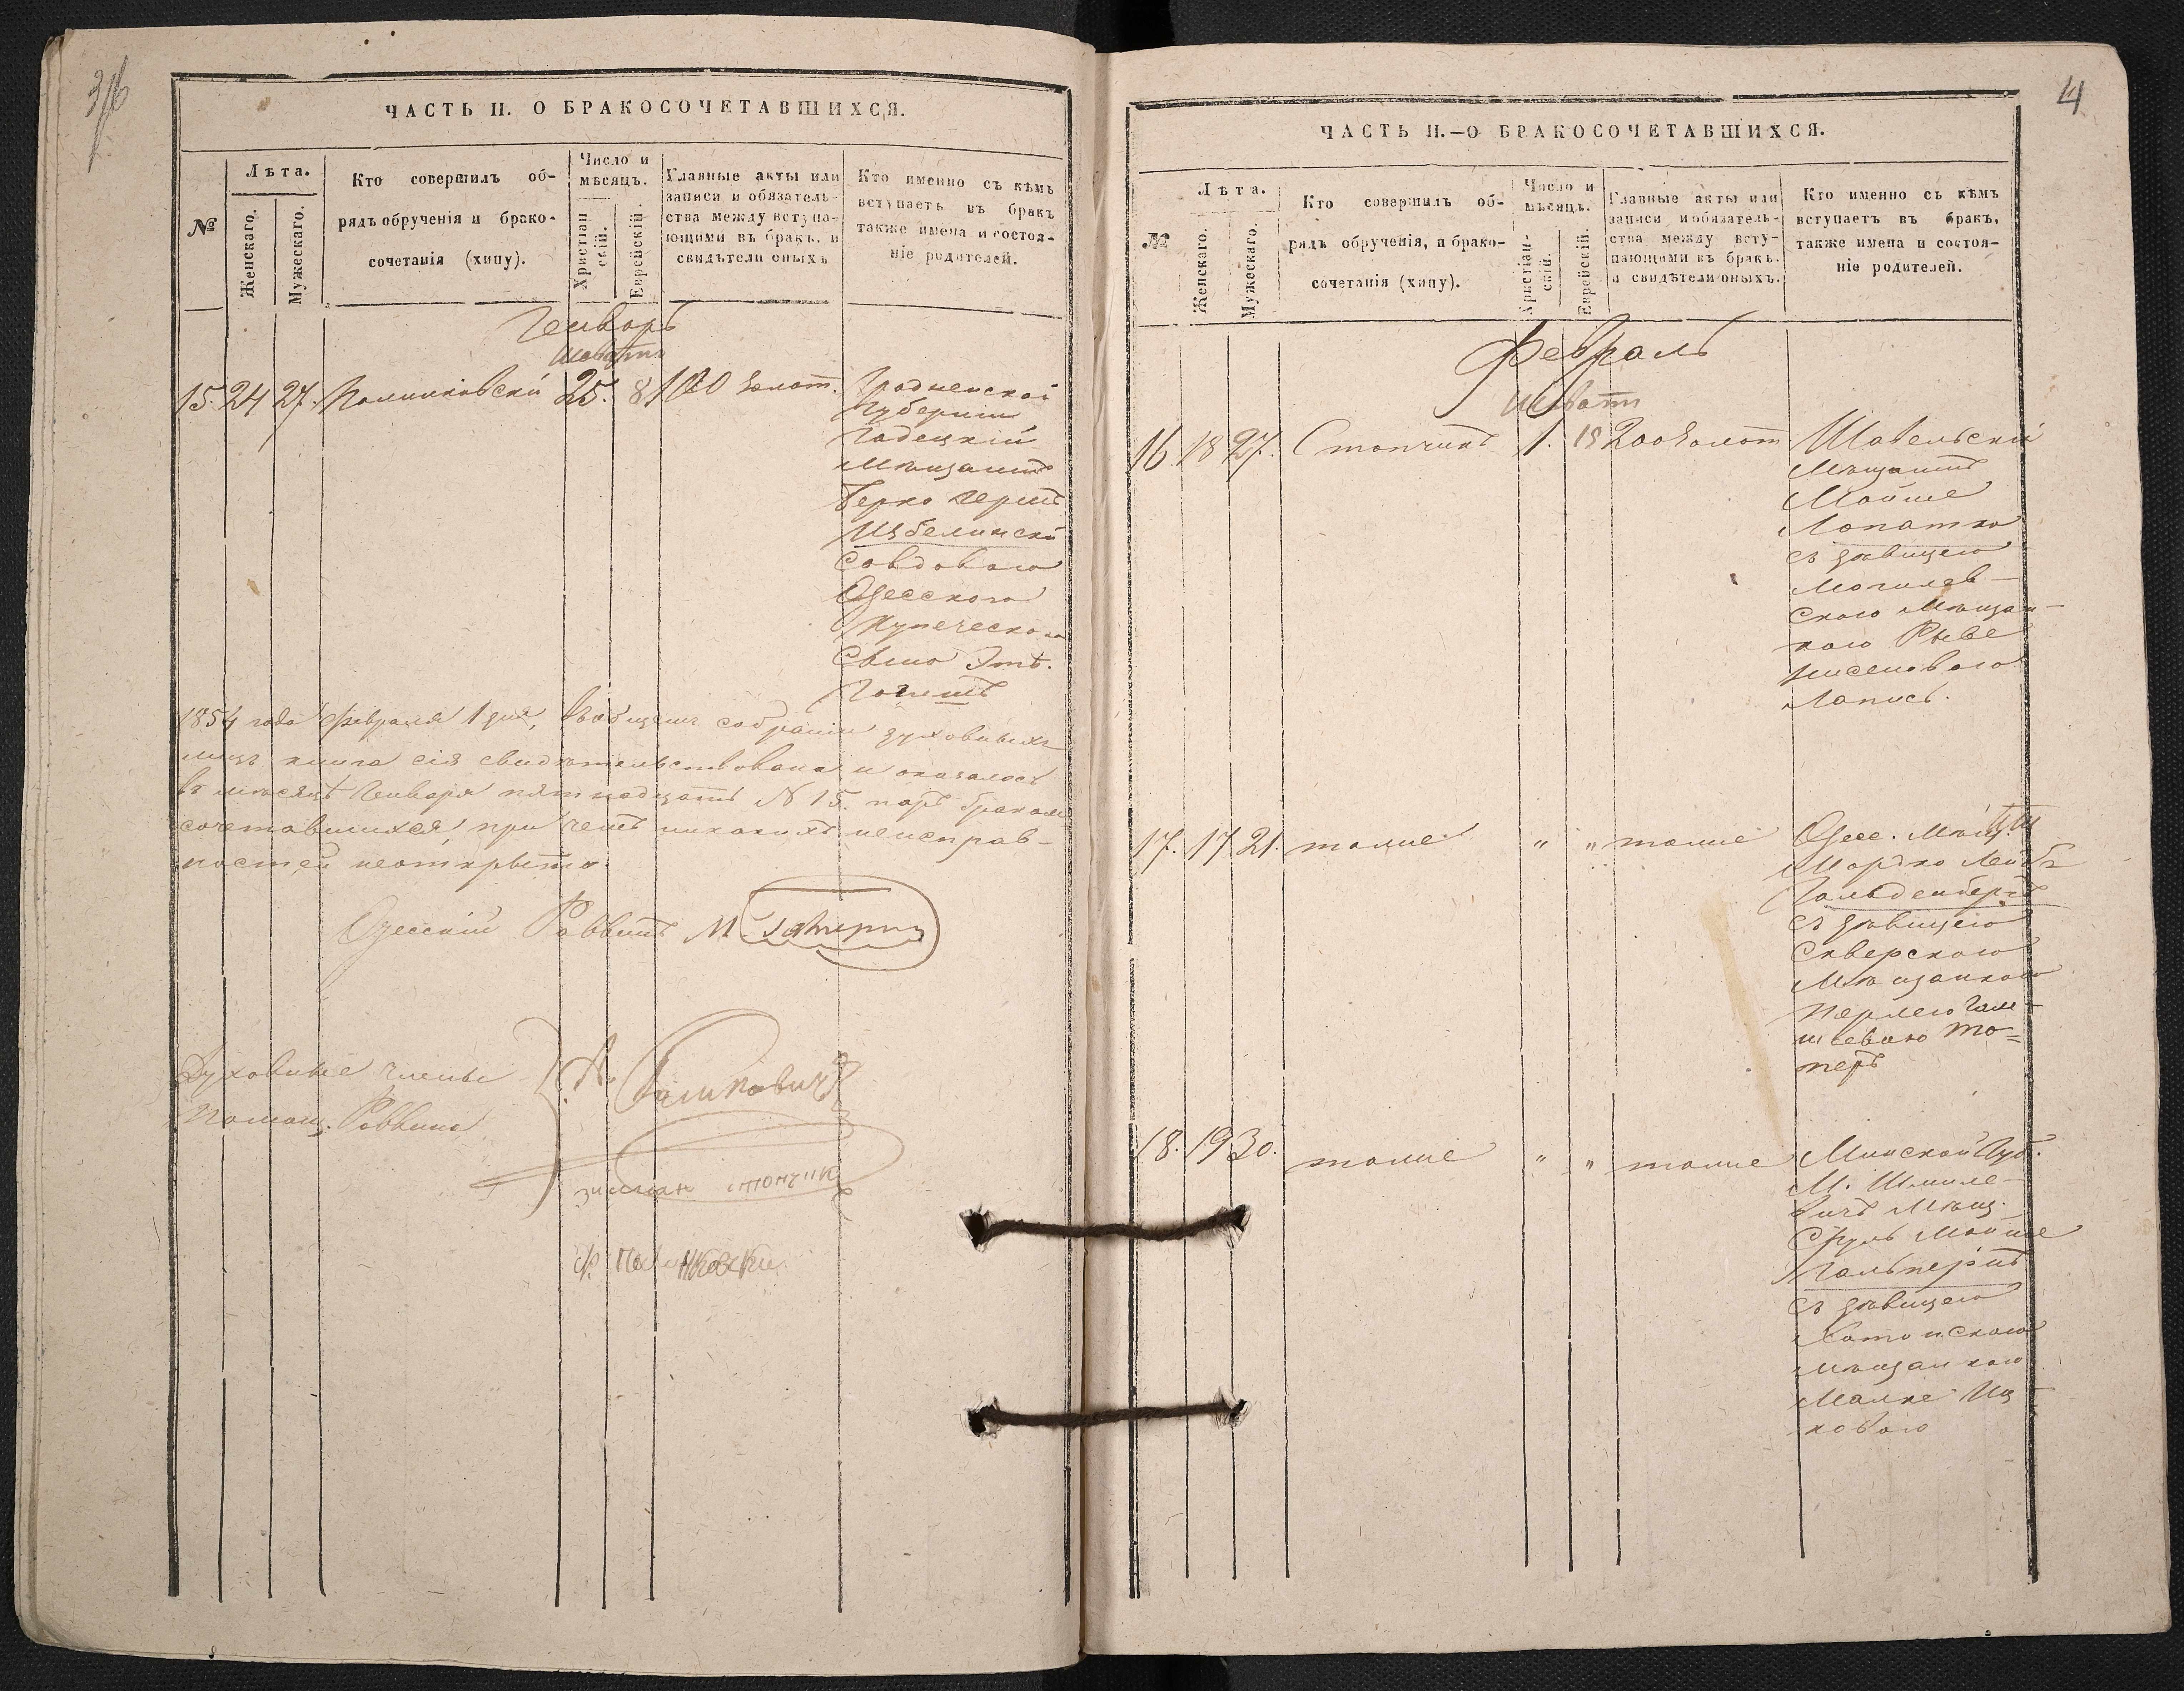 3/6
ЧАСТЬ II. О БРАКОСОЧЕТАВШИХСЯ.
№
Лѣта.
Женскаго.
Мужескаго.
Кто совершилъ об-
рядъ обрученія и брако-
сочетанія (хипу).
Число и
мѣсяцъ.
Христіан
скій.
Еврейскій.
Главные акты или
записи и обязатель-
ства между вступа-
ющими въ бракъ. и
свидѣтели оныхъ
Кто именно съ кѣмъ
вступаетъ въ бракъ
также имена и состоя-
ніе родителей.
Генварь
Шеватъ
15. 24 27. Полинковскій 25. 8 100 золот. Гродненской
Губерніи
мѣщанинъ
Берко Гершъ
Избелинскій
Со вдовою
Одесскою
Купеческою
1854 года Февраля 1 дня, въ общемъ собраніи духовныхъ
лицъ книга сія свидѣтельствована и оказалось
въ мѣсяцѣ Генварѣ пятнадцать N 15. паръ бракомъ
сочетавшихся при чемъ никакихъ неисправ-
ностей неоткрыто.
Одесскій Раввинъ М.
Духовные члены
Помощ. Раввина
А.
Зилман Стончик
Ф. Полинковский
4
ЧАСТЬ II.—О БРАКОСОЧЕТАВШИХСЯ.
№
Лѣта.
Женскаго.
Мужескаго.
Кто совершилъ об-
рядъ обрученія, и брако-
сочетанія (хипу).
Число и
мѣсяцъ.
Христіан-
скій.
Еврейскій.
Главные акты или
записи и обязатель-
ства между всту-
пающими въ бракъ.
и свидѣтели оныхъ.
Кто именно съ кѣмъ
вступаетъ въ бракъ,
также имена и состоя-
ніе родителей.
Февраль
Шеватъ
16. 18 27. Стончикъ 1. 15 200 золот Шавельскій
Мѣщанинъ
Мойше
Лопатко
съ дѣвицею
Могилев-
скою Мѣщан-
кою Рыве
Нисеновою
Лапись.
17. 17 21. тоже " " тоже Одес. Мѣщ.
Мордко Лейбъ
Гольденбергъ
съ дѣвицею
Сквирскою
Мѣщанкою
Перлею
То=
перъ
18. 19 30. тоже " " тоже Минской Губ.
М. Шмиле-
вичъ Мѣщ.
Сруль Мойше
Гальперинъ
съ дѣвицею
Хотинскою
мѣщанкою
Малке Иц-
ковою